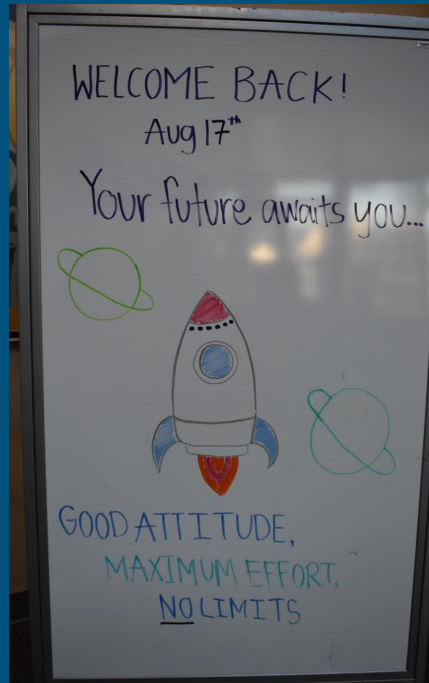 WELCOME BACK!
Aug 17th
Your future awaits you...
GOOD ATTITUDE,
MAXIMUM EFFORT,
NO LIMITS